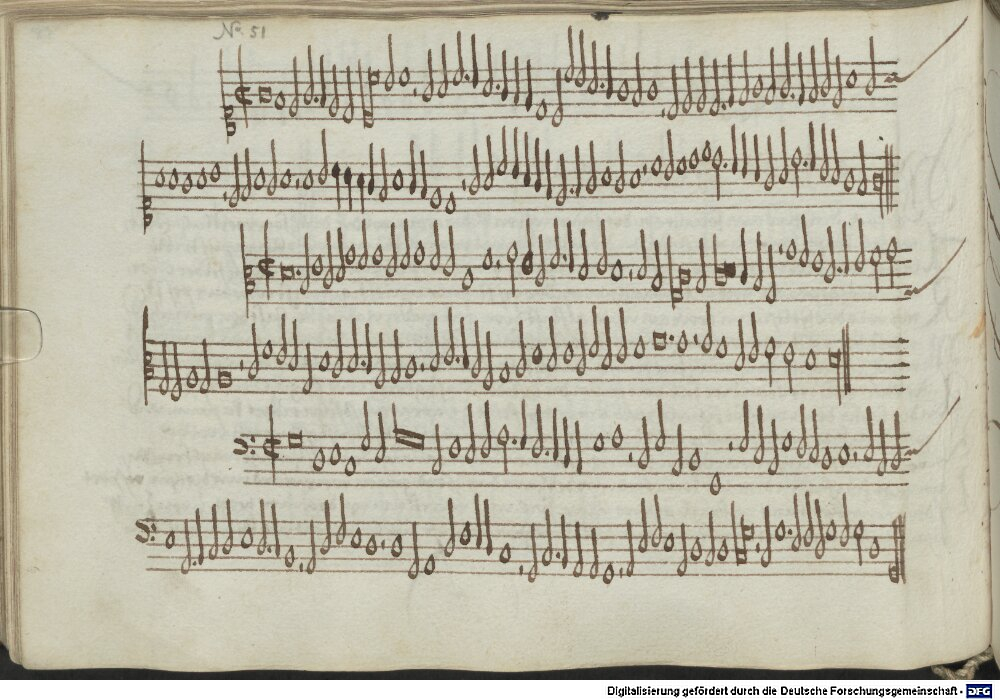 No. 51
Digitalisierung gefördert durch die Deutsche Forschungsgemeinschaft - DFG